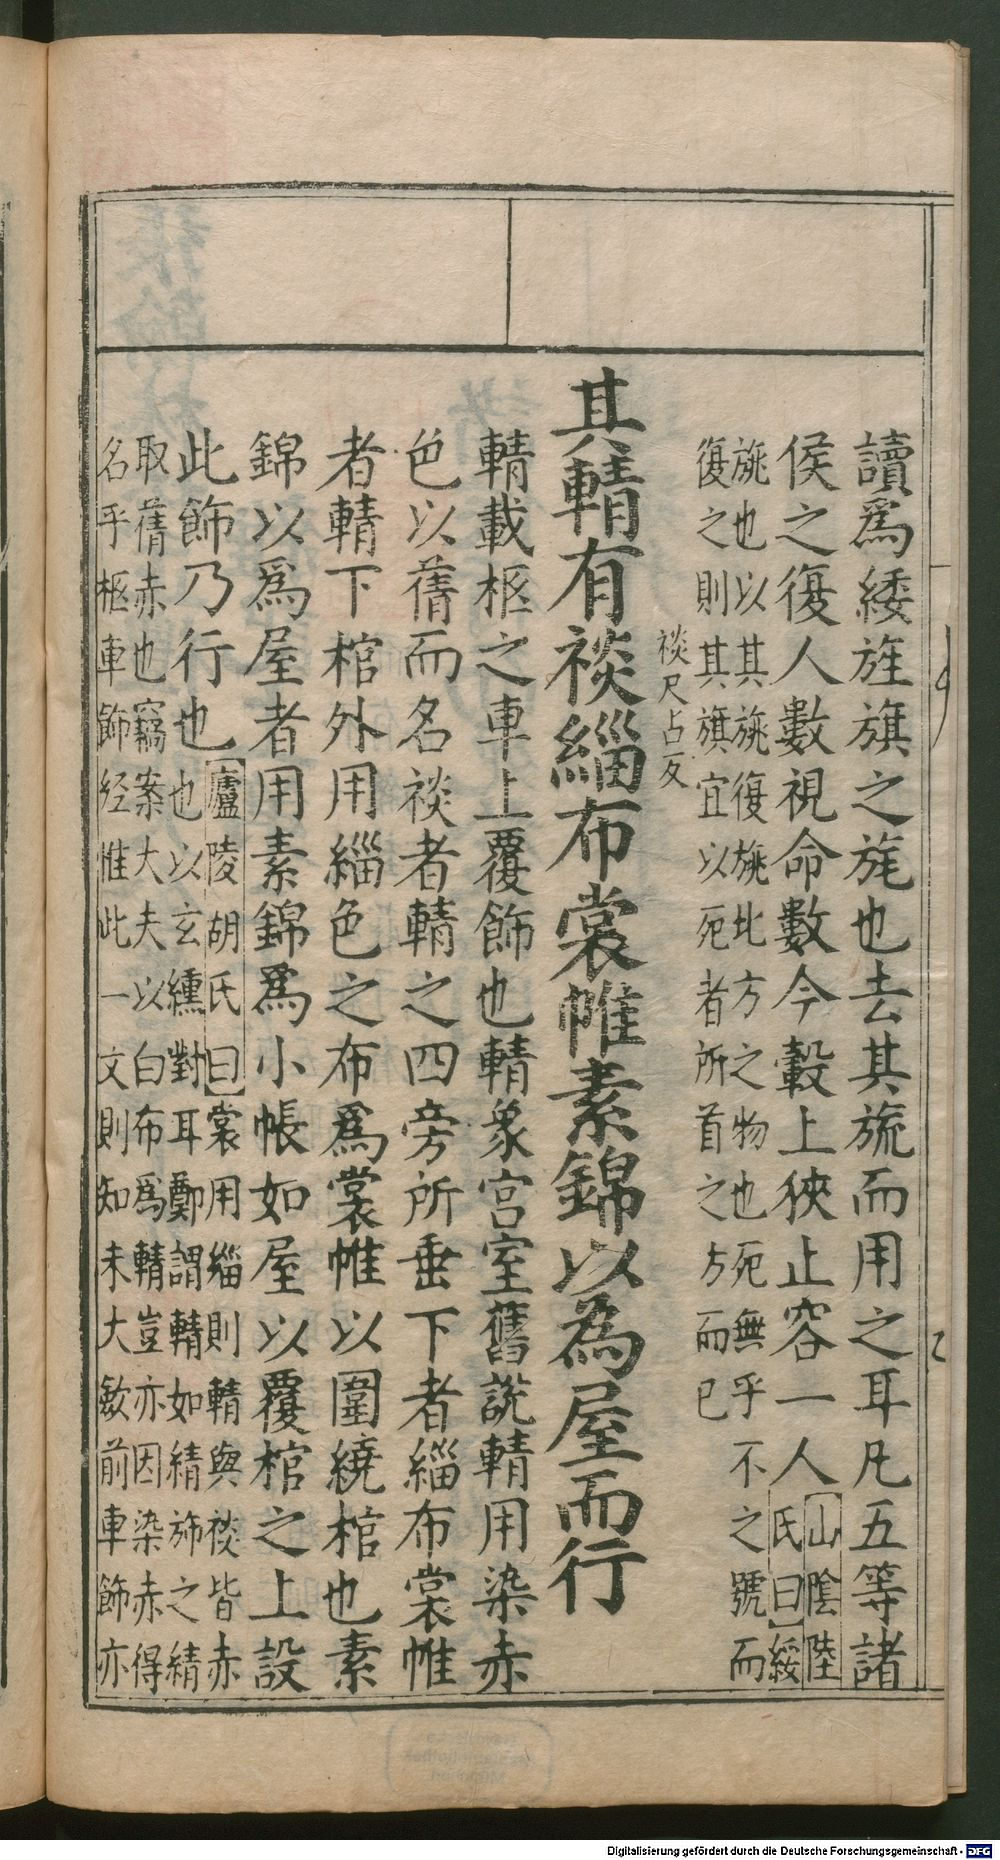 讀爲緌旌旗之旄也去其旒而用之耳凡五等諸
侯之復人數視命數今轂上狹止容一人
山陰陸
氏曰綏
旐也以其旐復旐北方之物也死無乎不之號而
復之則其旗宜以死者所首之方而已
裧尺占反
其輤有裧緇布裳帷素錦以為屋而行
輤載柩之車上覆飾也輤象宮室舊說輤用染赤
色以蒨而名裧者輤之四旁所垂下者緇布裳帷
者輤下棺外用緇色之布爲裳帷以圍繞棺也素
錦以爲屋者用素錦爲小帳如屋以覆棺之上設
此飾乃行也
廬陵胡氏曰裳用緇則輤與裧皆赤
也以玄纁對耳鄭謂輤如綪斾之綪
取蒨赤也竊案大夫以白布爲輤豈亦因染赤得
名乎柩車飾经惟此一文則知未大斂前車飾亦
Digitalisierung gefördert durch die Deutsche Forschungsgemeinschaft - DFG